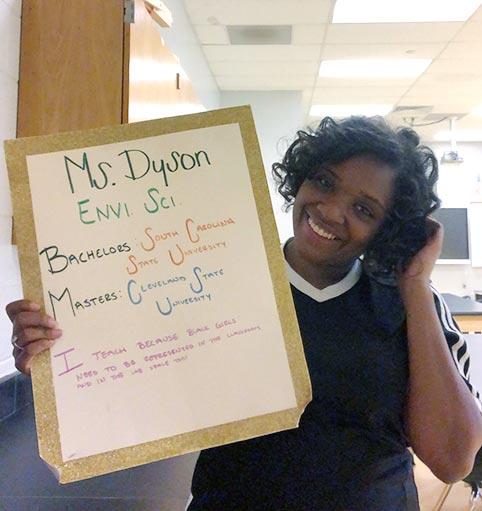 Ms. Dyson
Envi. Sci.
Bachelors: South Carolina
State University
Masters: Cleveland State
University
I teach because Black girls
need to be represented in the classroom
and in the lab space too!